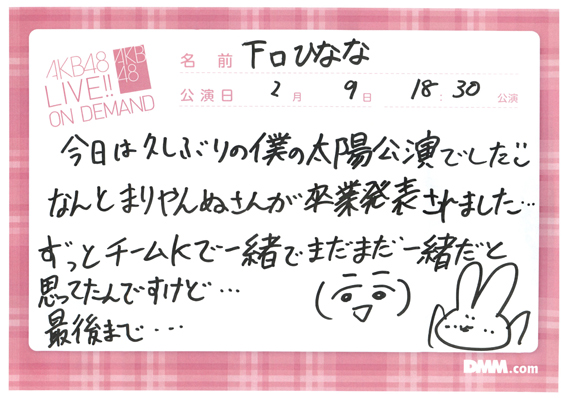 AKB48
LIVE!!
ON DEMAND
AKB
48
名前 下口ひなな
公演日 2月 9日 18:30 公演
今日は久しぶりの僕の太陽公演でした
なんとまりやんぬさんが卒業発表されました…
ずっとチームKで一緒でまだまだ一緒だと
思ってたんですけど…
最後まで…
DMM.com